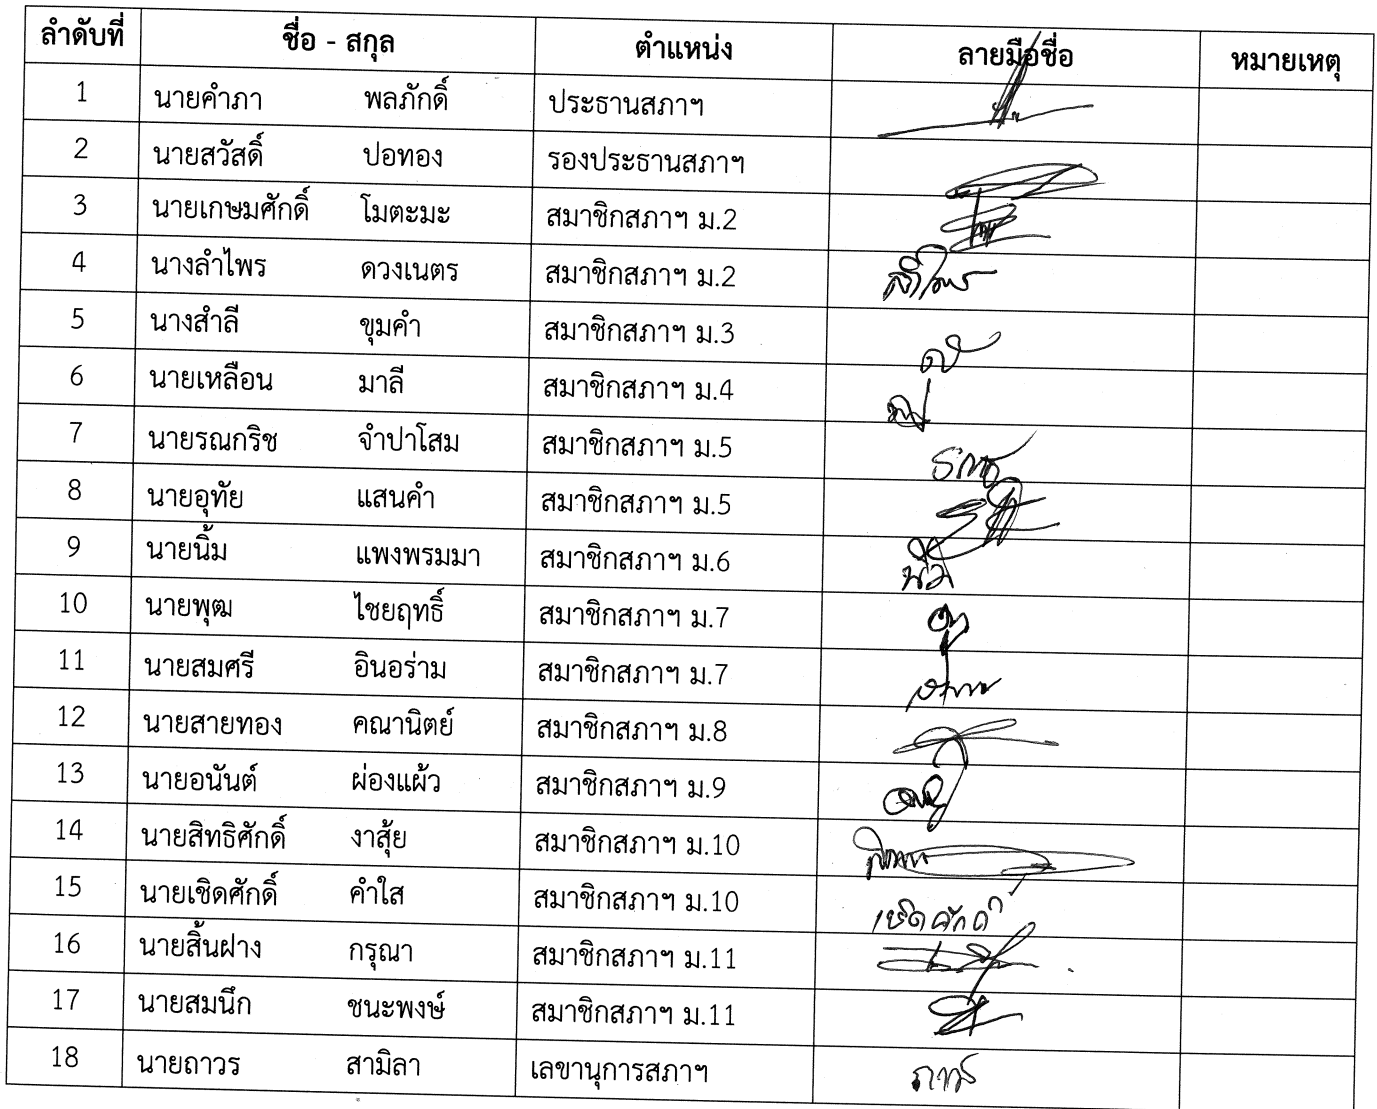 ลำดับที่ ชื่อ - สกุล ตำแหน่ง ลายมือชื่อ หมายเหตุ
1 นายคำภา พลภักดิ์ ประธานสภาฯ
2 นายสวัสดิ์ ปอทอง รองประธานสภาฯ
3 นายเกษมศักดิ์ โมตะมะ สมาชิกสภาฯ ม.2
4 นางลำไพร ดวงเนตร สมาชิกสภาฯ ม.2 ลำไพร
5 นางสำลี ขุมคำ สมาชิกสภาฯ ม.3
6 นายเหลือน มาลี สมาชิกสภาฯ ม.4
7 นายรณกริช จำปาโสม สมาชิกสภาฯ ม.5
8 นายอุทัย แสนคำ สมาชิกสภาฯ ม.5
9 นายนิ้ม แพงพรมมา สมาชิกสภาฯ ม.6
10 นายพุฒ ไชยฤทธิ์ สมาชิกสภาฯ ม.7
11 นายสมศรี อินอร่าม สมาชิกสภาฯ ม.7
12 นายสายทอง คณานิตย์ สมาชิกสภาฯ ม.8
13 นายอนันต์ ผ่องแผ้ว สมาชิกสภาฯ ม.9
14 นายสิทธิศักดิ์ งาสุ้ย สมาชิกสภาฯ ม.10
15 นายเชิดศักดิ์ คำใส สมาชิกสภาฯ ม.10 เชิดศักดิ์
16 นายสิ้นฝาง กรุณา สมาชิกสภาฯ ม.11
17 นายสมนึก ชนะพงษ์ สมาชิกสภาฯ ม.11
18 นายถาวร สามิลา เลขานุการสภาฯ ถาวร